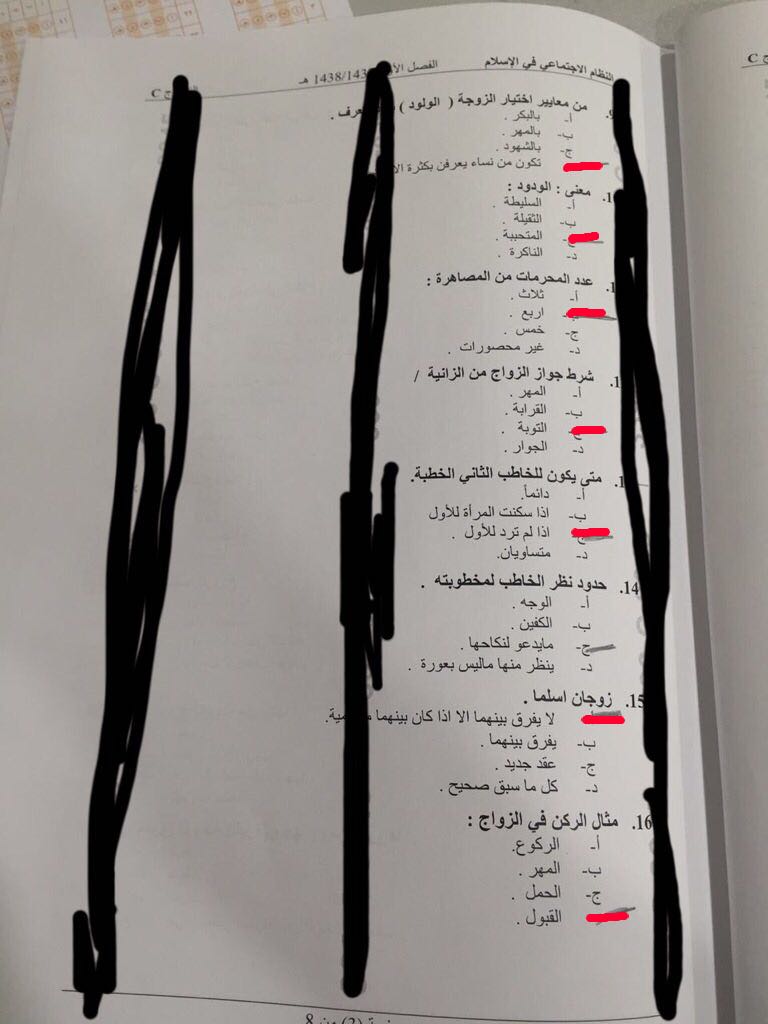 النظام الاجتماعي في الإسلام الفصل 1438/143 هـ C
9. من معايير اختيار الزوجة ( الولود )
أ- بالبكر .
ب- بالمهر .
ج- بالشهود .
تكون من نساء يعرفن بكثرة
معنى : الودود :
أ- السليطة .
ب- الثقيلة .
المتحببة .
د- الناكرة .
عدد المحرمات من المصاهرة :
أ- ثلاث .
اربع .
ج- خمس .
د- غير محصورات .
شرط جواز الزواج من الزانية /
أ- المهر .
ب- القرابة .
التوبة .
د- الجوار .
متى يكون للخاطب الثاني الخطبة.
أ- دائماً.
ب- اذا سكنت المرأة للأول
اذا لم ترد للأول .
د- متساويان.
14. حدود نظر الخاطب لمخطوبته .
أ- الوجه .
ب- الكفين .
ج- مايدعو لنكاحها .
د- ينظر منها ماليس بعورة .
15. زوجان اسلما .
لا يفرق بينهما الا اذا كان بينهما
ب- يفرق بينهما .
ج- عقد جديد .
د- كل ما سبق صحيح .
16. مثال الركن في الزواج :
أ- الركوع.
ب- المهر .
ج- الحمل .
القبول .
(2) من 8
C